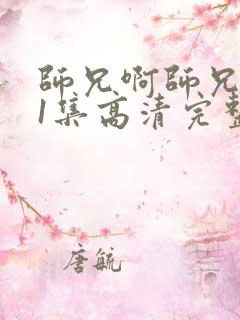 師兄啊師兄
1集高清完整
唐毓